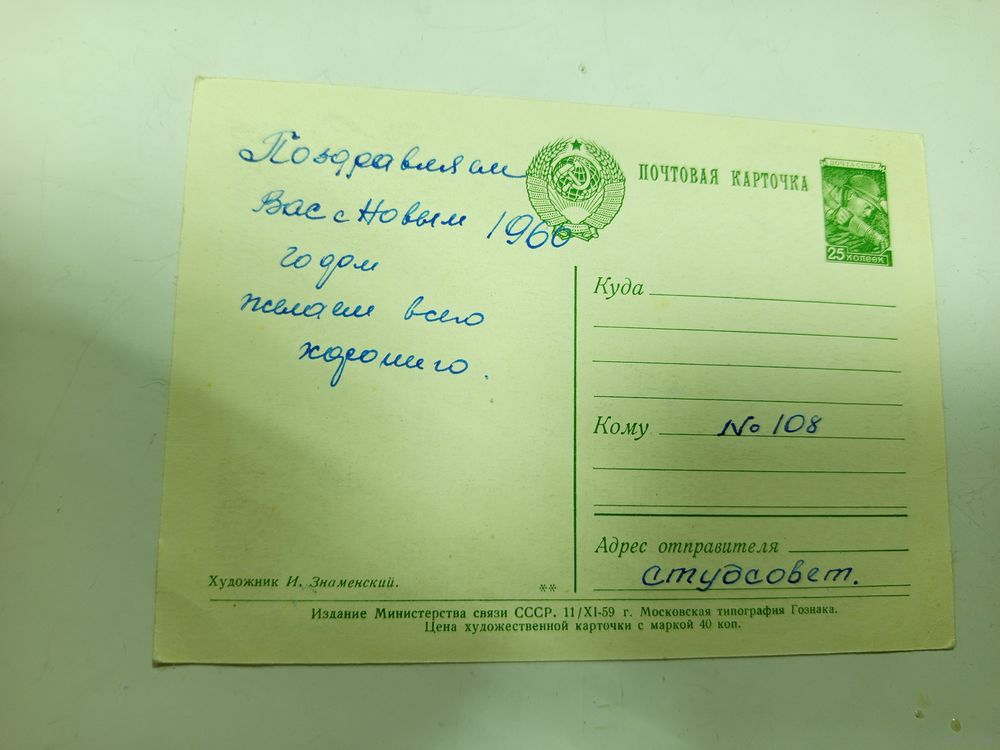 Поздравляем
Вас с Новым 1960
годом
желаем всего
хорошего.
ПОЧТОВАЯ КАРТОЧКА
ПОЧТА СССР
25 КОПЕЕК
Куда
Кому № 108
Адрес отправителя
студсовет.
Художник И. Знаменский.
**
Издание Министерства связи СССР. 11/XI-59 г. Московская типография Гознака.
Цена художественной карточки с маркой 40 коп.